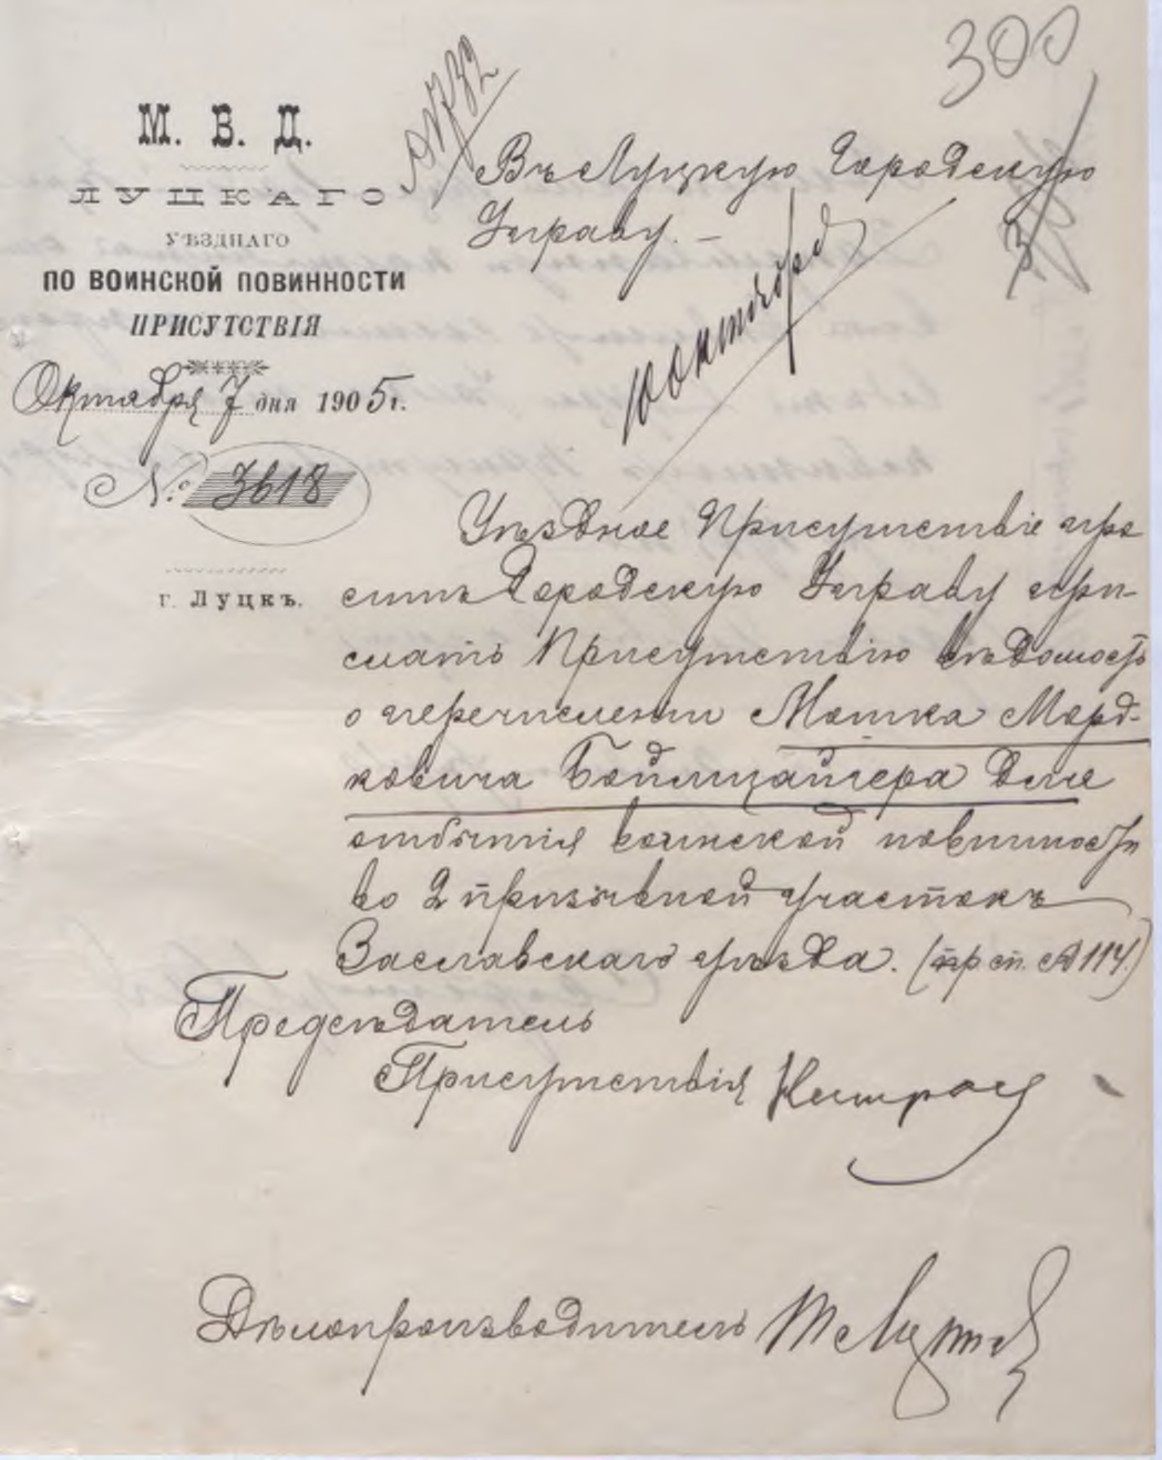 300
М. В. Д.
ЛУЦКАГО
УѢЗДНАГО
ПО ВОИНСКОЙ ПОВИННОСТИ
ПРИСУТСТВІЯ
Октября 7 дня 1905 г.
№ 3618
г. Луцкъ.
Въ Луцкую Городскую
Управу. –
10 октября
Уѣздное Присутствіе про
ситъ Городскую Управу при-
слать Присутствію вѣдомость
о перечислении Мошка Морд-
ковича Боймцайгера для
отбытія воинской повинности
во 2 призывной участокъ
Заславскаго уѣзда. (пр. сп. № 114.)
Предсѣдатель
Присутствія
Дѣлопроизводитель